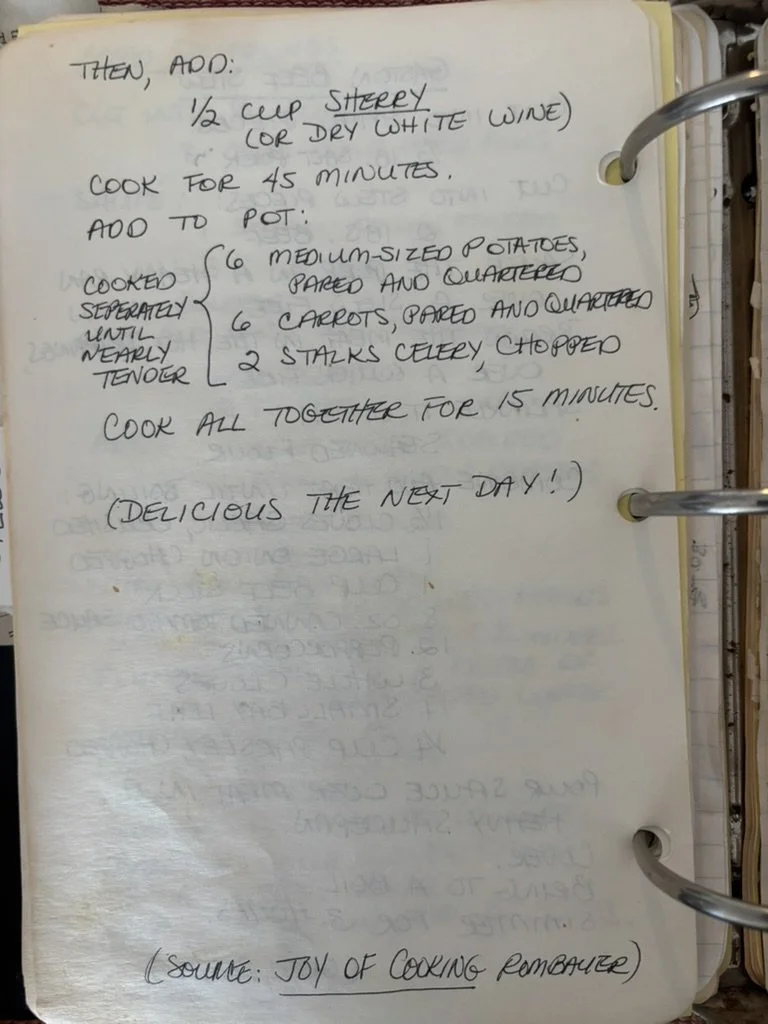 THEN, ADD:
1/2 CUP SHERRY
(OR DRY WHITE WINE)
COOK FOR 45 MINUTES.
ADD TO POT:
COOKED SEPERATELY UNTIL NEARLY TENDER
6 MEDIUM-SIZED POTATOES,
PARED AND QUARTERED
6 CARROTS, PARED AND QUARTERED
2 STALKS CELERY, CHOPPED
COOK ALL TOGETHER FOR 15 MINUTES.
(DELICIOUS THE NEXT DAY!)
(SOURCE: JOY OF COOKING ROMBAUER)